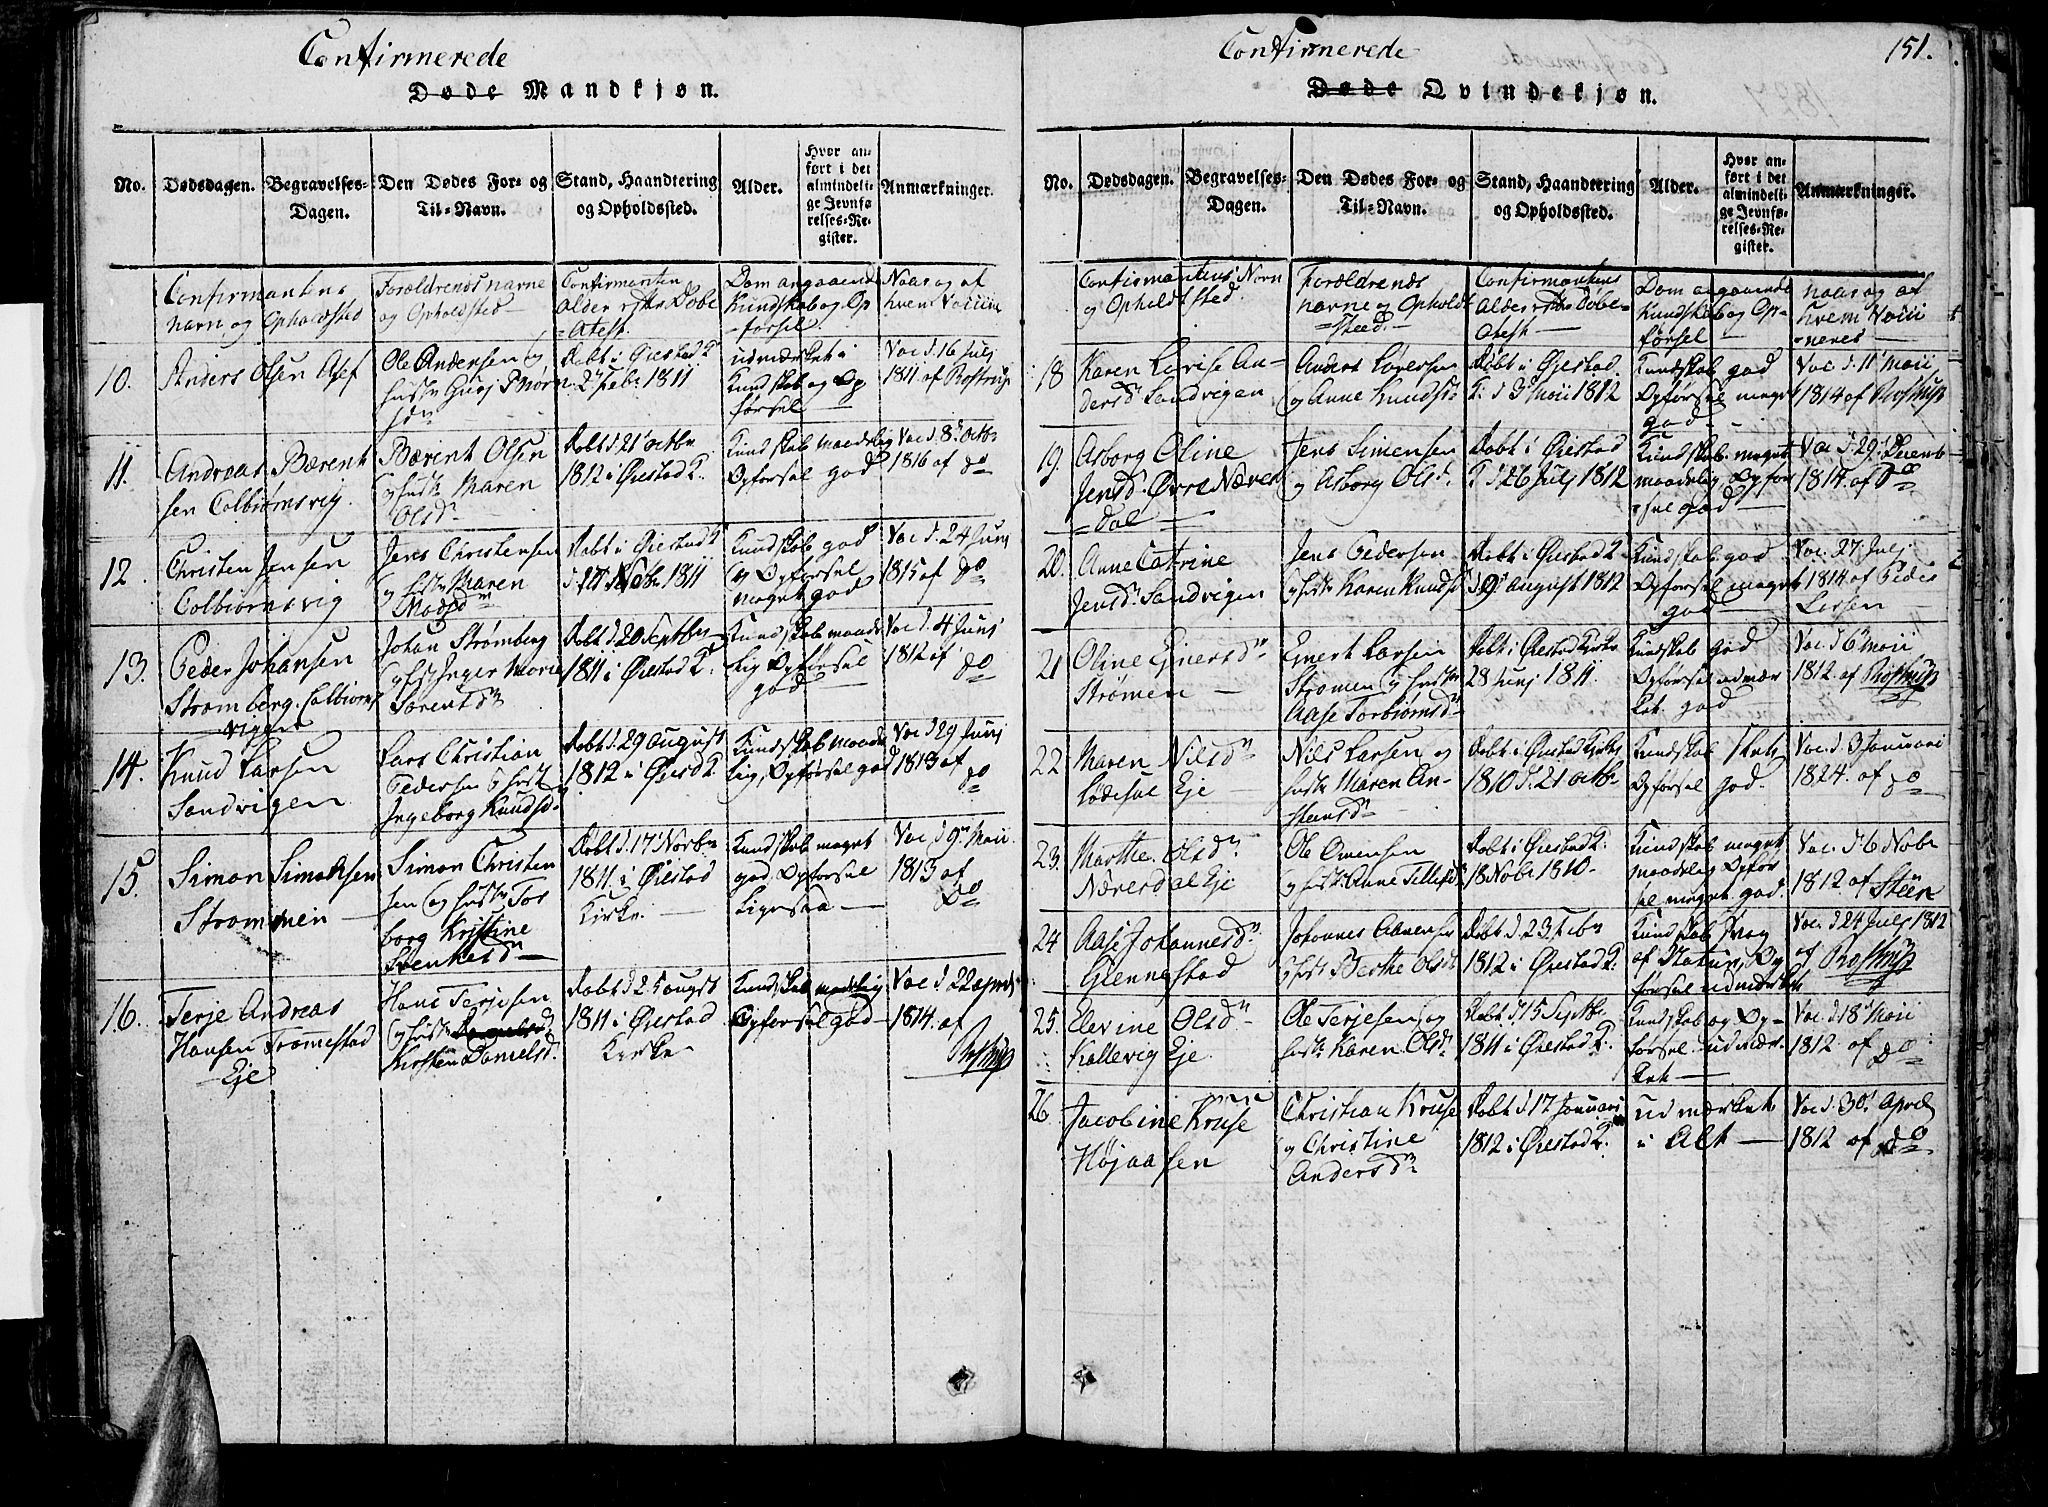 Confirmerede
Døde Mandkjøn.
No.
Dødsdagen.
Begravelses-
Dagen.
Den Dødes For- og
Til-Navn.
Stand, Haandtering
og Opholdssted.
Alder.
Hvor an-
ført i det
almindeli-
ge Jevnfø-
relses-Re-
gister.
Anmærkninger.
Confirmantens
navn og Opholdsted
Forældrenes navne
og Opholdsted
Confirmanten
alder efter Døbe
Atest
Dom angaaende
Kundskab og Op
førsel
Naar og af
hvem Vaccin
10.
Anders Olsen Asef
Ole Andersen og
hustr Guri
Døbt i Øiestad K
2 Febr 1811
udmærket i
Kundskab og Op
førsel
Vac d. 16 Julj
1811 af Rostrup
11.
Andreas Bærent
sen Colbiørnsvig.
Bærent Olsen
og hustr Maren
Olsdr
Døbt d. 21 octbr
1812 i Øiestad K.
Kundskab maadelig
Opførsel god
Vac d. 8 octbr
1816 af do
12.
Christen Jensen
Colbiørnsvig
Jens Christensen
og hstr Maren
Madsdr
Døbt i Øiestad K
Nobr 1811
Kundskab god
og Opførsel
meget god
Vac d. 24 Junj
1815 af do
13.
Peder Johansen
Strømberg. Colbiørns
vigen
Johan Strømberg
og hst Inger Marie
Sørentsdr
Døbt d. 20 Septbr
1811 i Øiestad K.
Kundskab maade
lig Opførsel
god
Vac d. 4 Junj
1812 af
do
14.
Knud Larsen
Sandvigen
Lars Christian
Pedersen og hstr
Ingeborg Knudsdr
Døbt d. 29 august
1812 i Øiesd K
Kundskab maade
lig, Opførsel god
Vac d 29 Junj
1813 af
do
15.
Simon Simonsen
Strømmen
Simon Christen
sen og hustr Tor
borg Kristine
Svenkesdr
Døbt d. 17 Novbr
1811. i Øiestad
Kirke.
Kundskab meget
god, Opførsel
ligesaa
Vac d 9 Maii
1813 af
do
16.
Terje Andreas
Hansen Trommestad
Eje
Hans Terjesen
og hustr
Kirsten Danielsdr
Døbt d 25 augst
1811 i Øiestad
Kirke
Kundskab madelig
Opførsel god
Vac d 22 april
1814. af
Rostrup
151.
Confirmerede
Døde Qvindekjøn.
No.
Dødsdagen.
Begravelses-
Dagen.
Den Dødes For- og
Til-Navn.
Stand, Haandtering
og Opholdssted.
Alder.
Hvor an-
ført i det
almindeli-
ge Jevnfø-
relses-Re-
gister.
Anmærkninger.
Confirmantens Navn
og Opholdsted.
Forældrenes
navne og Opholds
sted.
Confirmantens
Alder efter Døbe-
Atest
Dom angaaende
Kundskab og Op-
førsel
naar og af
hvem Vacci
neret
18
Karen Lovise An-
dersdr Sandvigen
Anders Lorentsen
og Anne Knudsdr
Døbt i Øiestad
K. d 3 Maii 1812
Kundskab god
Opførsel meget
god
Vac d. 11 Maii
1814 af Rostrup
19.
Asborg Oline
Jensdr Øvre Næres
dal
Jens Simensen
og Asborg Olsdr
Døbt i Øiestad
K d 26 Julj 1812
Kundskab. meget
maadelig, Opfør
sel god
Vac d. 29 Decemb
1814. af do
20.
Anne Catrine
Jensdr Sandvigen
Jens Pedersen
og hstr Karen Knudsd
Døbt i Øiestad K
d 9 august 1812
Kundskab god
Opførsel meget
god
Vac. 27 Julj
1814 af Peder
Larsen
21
Oline Ejnersdr
Strømen
Ejnert Larsen
Strømen og hustr
Aase Torbiørnsdr
Døbt i Øiestad Kirke
28 Junj 1811.
Kundskab god
Opførsel udmær
ket god
Vac d 6 Maii
1812. af Rostrup
22
Maren Nilsdr
Lødesøl Eje
Nils Larsen og
hustr Maren An-
stensdr
Døbt i Øiestad Kirke
1810 d. 21 octbr
Kundskab slet
Opførsel god.
Vac d. 3 Januari
1824. af do
23.
Marthe. Olsdr
Næresdal Eje
Ole Omensen
og hustr Anne Tellefsd
Døbt i Øiestad K.
18 Nobr 1810
Kundskab meget
maadelig Opfør
sel meget god.
Vac. d. 6 Nobr
1812. af Steen
24
Aase Johannesdr
Glennestad
Johannes Aanensen
og hustr Berthe Olsdr
Døbt d. 23 Febr
1812 i Øiestad K.
Kundskab svag
af Natur, Op
førsel udmærket
Vac d 24 Julj 1812
af Rostrup
25.
Elevine Olsdr
Kallevig Eje
Ole Terjesen og
hustr Karen Olsdr
Døbt d 15 Septbr
1811 i Øiestad K.
Kundskab og Op-
førsel udmær.
ket
Vac d. 18 Maii
1812. af do
26
Jacobine Kruse
Højaasen
Christian Kruse
og Christine
Andersdr
Døbt d. 17 Januari
1812 i Øiestad K.
udmærket
i Alt
Vac d. 30 April
1812 af do